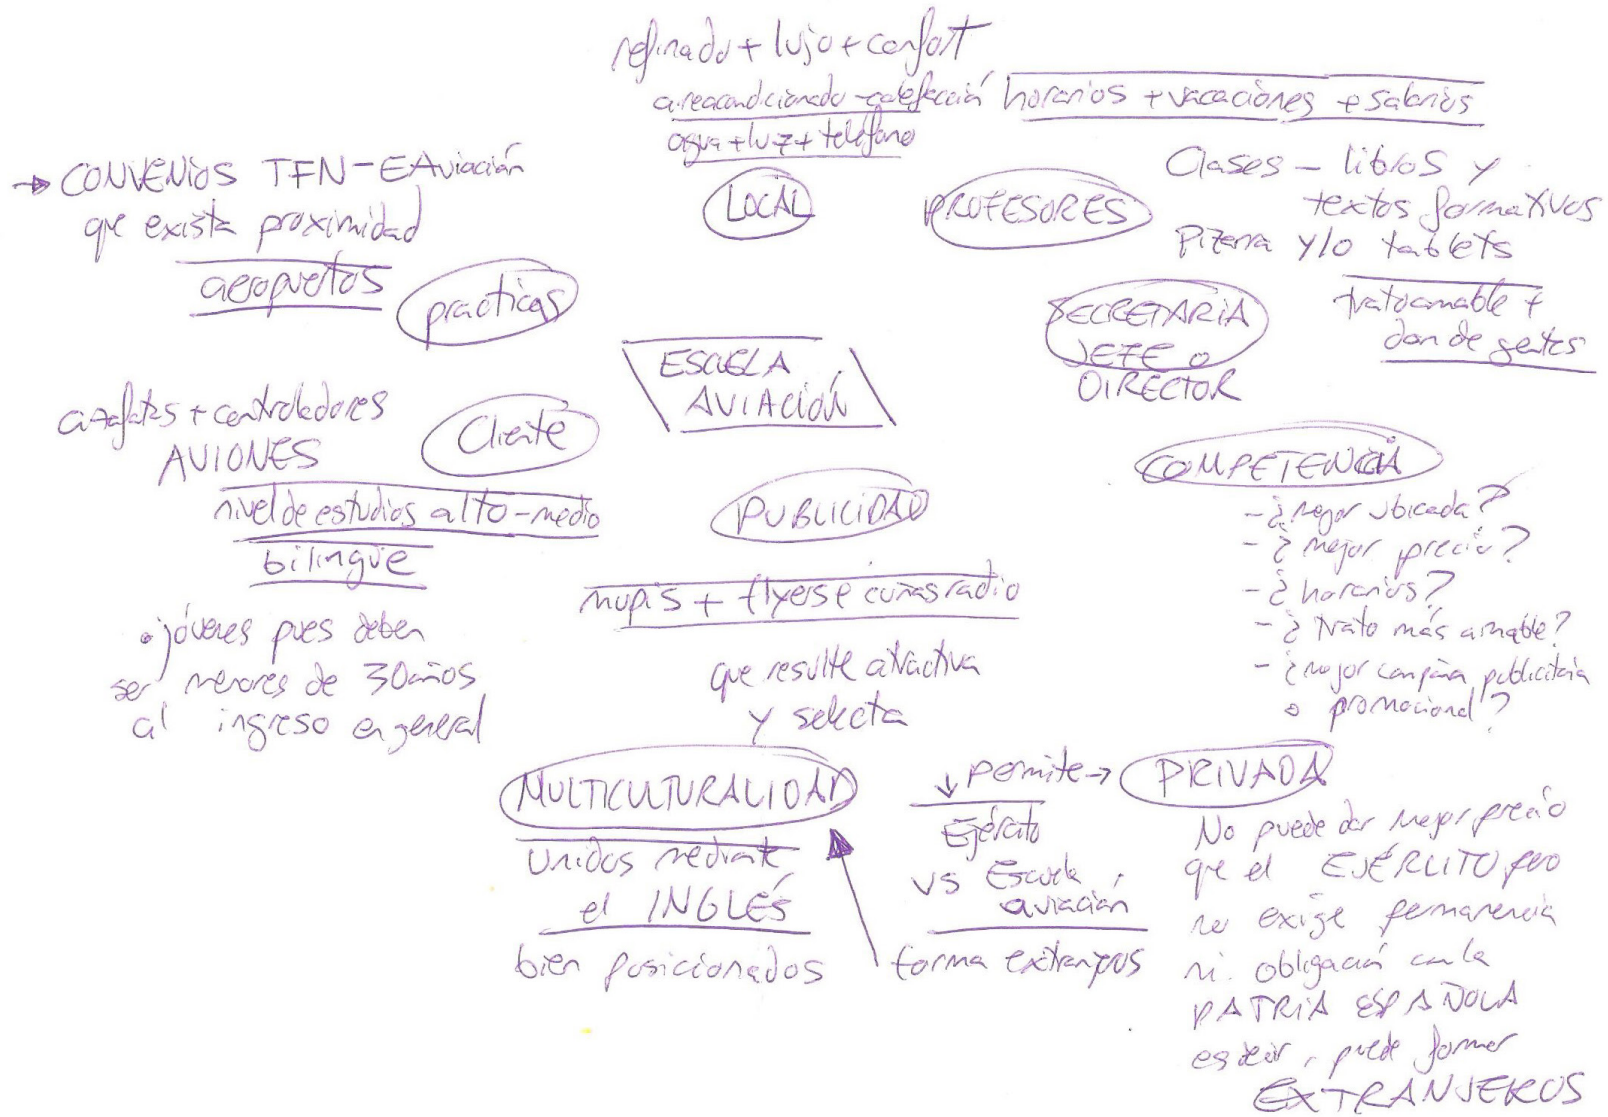 refinado + lujo + confort
aireacondicionado - calefacción
agua + luz + teléfono
LOCAL
horarios + vacaciones + salarios
PROFESORES
Clases - libros y
textos formativos
Pizarra y/o tablets
→ CONVENIOS TFN - EAviación
que exista proximidad
aeropuertos
practicas
SECRETARIA
JEFE o
DIRECTOR
trato amable +
don de gentes
ESCUELA
AVIACIÓN
azafatas + controladores
AVIONES
Cliente
nivel de estudios alto - medio
bilingüe
• jóvenes pues deben
ser menores de 30 años
al ingreso en general
PUBLICIDAD
mupis + flyers e cuñas radio
que resulte atractiva
y selecta
COMPETENCIA
- ¿mejor ubicada?
- ¿mejor precio?
- ¿horarios?
- ¿trato más amable?
- ¿mejor campaña publicitaria
o promocional?
MULTICULTURALIDAD
Unidos mediante
el INGLÉS
bien posicionados
↓ permite →
Ejército
vs Escuela
aviación
forma extranjeros
PRIVADA
No puede dar mejor precio
que el EJÉRCITO pero
no exige permanencia
ni obligación con la
PATRIA ESPAÑOLA
es decir, puede formar
EXTRANJEROS